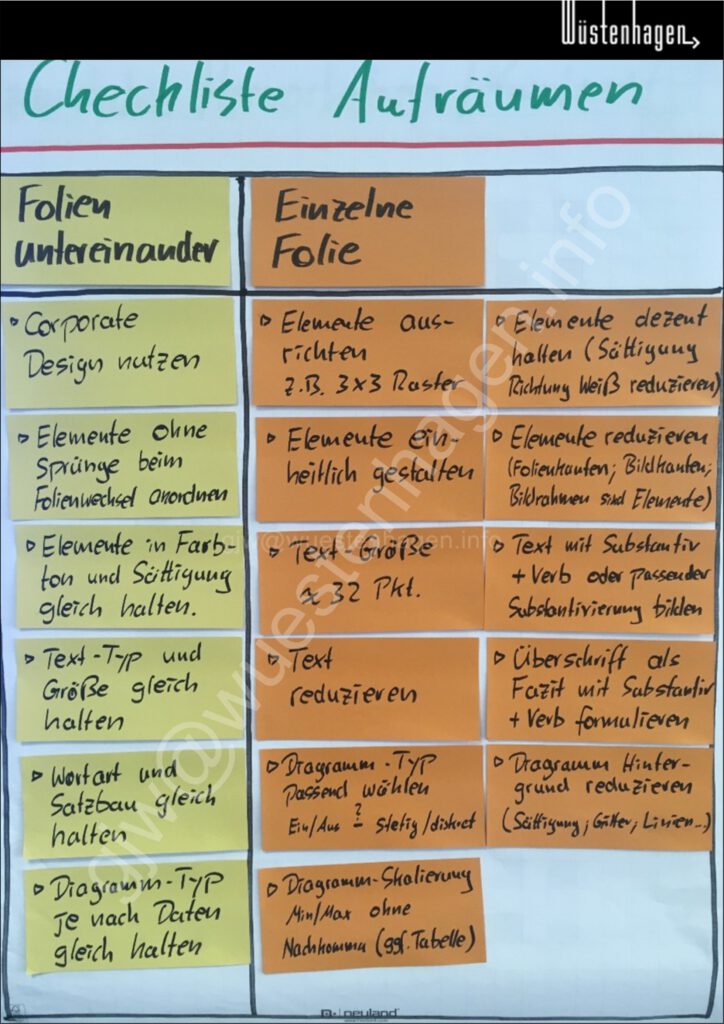 Wüstenhagen
Checkliste Aufräumen
Folien
untereinander
Einzelne
Folie
Corporate
Design nutzen
Elemente ohne
Sprünge beim
Folienwechsel anordnen
Elemente in Farb-
ton und Sättigung
gleich halten.
Text-Typ und
Größe gleich
halten
Wortart und
Satzbau gleich
halten
Diagramm-Typ
je nach Daten
gleich halten
Elemente aus-
richten
z.B. 3x3 Raster
Elemente ein-
heitlich gestalten
Text-Größe
≈ 32 Pkt.
Text
reduzieren
Diagramm-Typ
passend wählen
Ein/Aus ≟ stetig/diskret
Diagramm-Skalierung
Min/Max ohne
Nachkomma (ggf. Tabelle)
Elemente dezent
halten (Sättigung
Richtung Weiß reduzieren)
Elemente reduzieren
(Folienkanten; Bildkanten;
Bildrahmen sind Elemente)
Text mit Substantiv
+ Verb oder passender
Substantivierung bilden
Überschrift als
Fazit mit Substantiv
+ Verb formulieren
Diagramm Hinter-
grund reduzieren
(Sättigung; Gitter; Linien...)
gjw@wuestenhagen.info
gjw@wuestenhagen.info
neuland